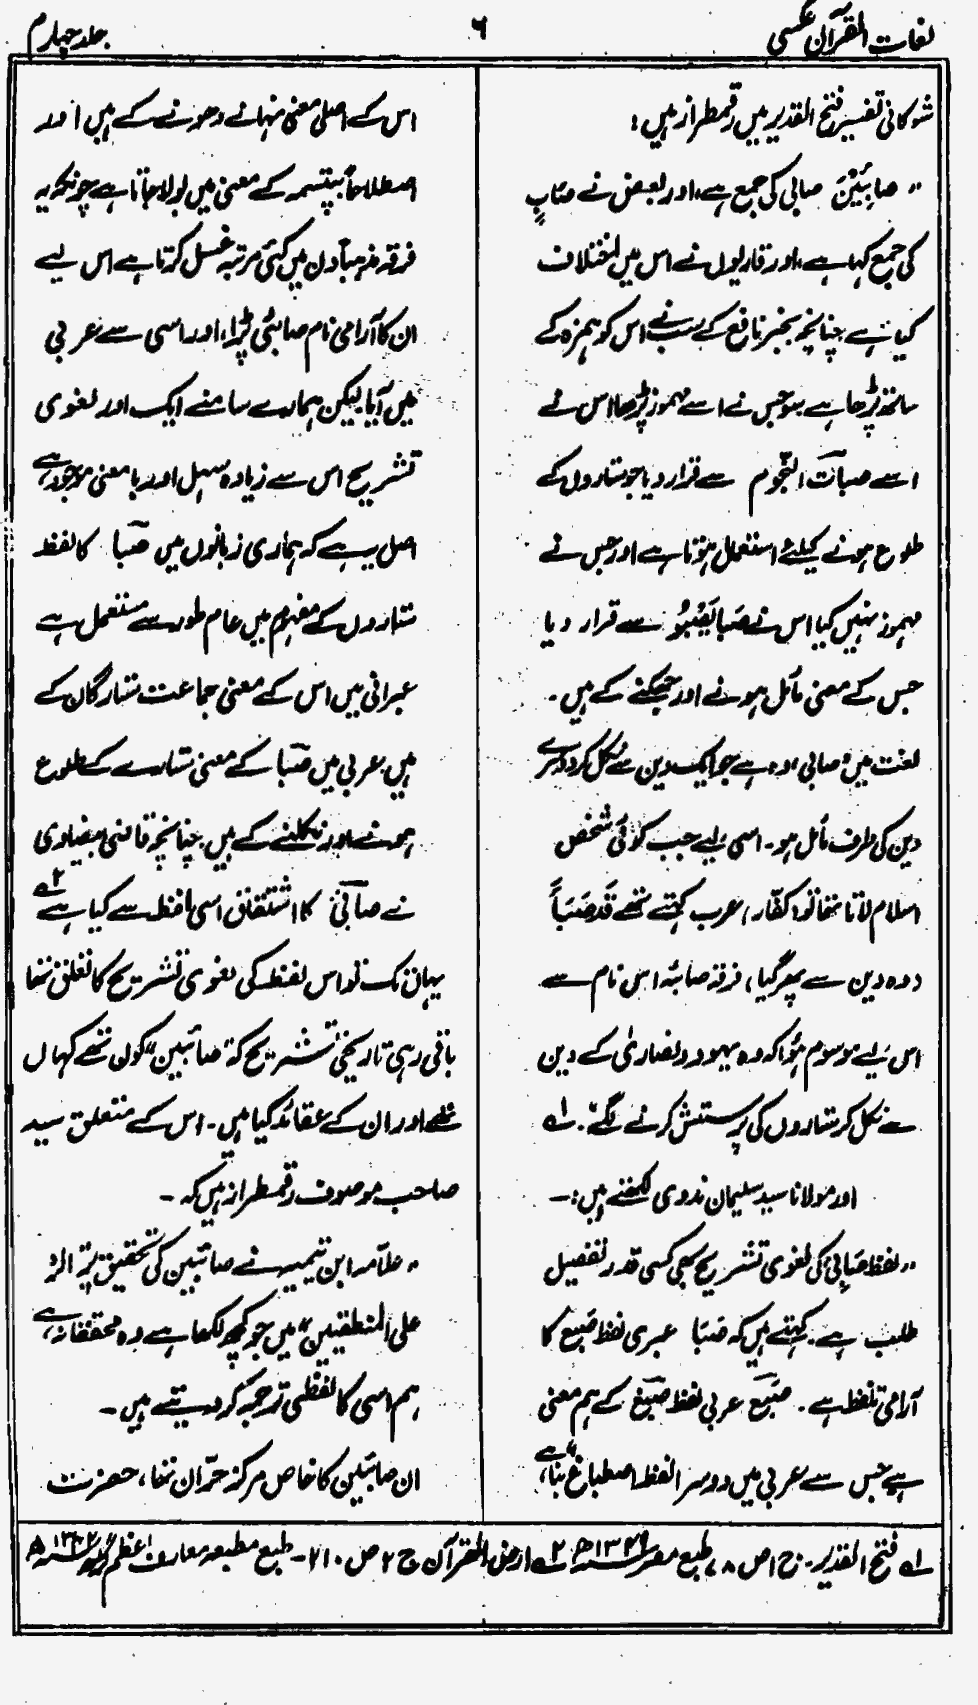 لغات القرآن عکسی
۶
جلد چہارم
شوکانی تفسیر فتح القدیر میں رقمطراز ہیں:
"صابِئِیْنَ صابی کی جمع ہے، اور بعض نے صَابٍ
کی جمع کہا ہے، اور قاریوں نے اس میں اختلاف
کیا ہے چنانچہ بجز نافع کے سب نے اس کو ہمزہ کے
ساتھ پڑھا ہے سو جس نے اسے مہموز پڑھا اس نے
اسے صبأت النجوم سے قرار دیا جو ستاروں کے
طلوع ہونے کیلئے استعمال ہوتا ہے اور جس نے
مہموز نہیں کیا اس نے صَبَا یَصْبُوْ سے قرار دیا
جس کے معنی مائل ہونے اور جھکنے کے ہیں۔
لغت میں صابی، وہ ہے جو ایک دین سے نکل کر دوسرے
دین کی طرف مائل ہو۔ اسی لیے جب کوئی شخص
اسلام لاتا تھا تو کفار عرب کہتے تھے قَدْ صَبَأَ
(وہ دین سے پھر گیا) فرقہ صابئہ اس نام سے
اس لیے موسوم ہوا کہ وہ یہود و نصاریٰ کے دین
سے نکل کر ستاروں کی پرستش کرنے لگے"۔ لہ
اور مولانا سید سلیمان ندوی لکھتے ہیں:۔
"لفظ صَابِی کی لغوی تشریح بھی کسی قدر تفصیل
طلب ہے۔ کہتے ہیں کہ صَبَا عبری لفظ صَبَع کا
آرامی تلفظ ہے۔ صَبَع عربی لفظ صَبَغ کے ہم معنی
ہے جس سے عربی میں دوسرا لفظ اصطباغ بنا ہے،
اس کے اصلی معنی نہانے دھونے کے ہیں اور
اصطلاحاً بپتسمہ کے معنی میں بولا جاتا ہے چونکہ یہ
فرقہ مذہباً دن میں کئی مرتبہ غسل کرتا ہے اس لیے
ان کا آرامی نام صابئی پڑا، اور اسی سے عربی
میں آیا لیکن ہمارے سامنے ایک اور لغوی
تشریح اس سے زیادہ سہل اور بامعنی موجود ہے،
اصل یہ ہے کہ ہماری زبانوں میں صَبا کا لفظ
ستاروں کے مفہوم میں عام طور سے مستعمل ہے
عبرانی میں اس کے معنی جماعت ستارگان کے
ہیں، عربی میں صَبأ کے معنی ستارے کے طلوع
ہونے اور نکلنے کے ہیں، چنانچہ قاضی بیضاوی
نے صابئی کا اشتقاق اسی لفظ سے کیا ہے ۲ہ
یہاں تک تو اس لفظ کی لغوی تشریح کا تعلق تھا
باقی رہی تاریخی تشریح کہ "صائبین" کون تھے کہاں
تھے اور ان کے عقائد کیا ہیں۔ اس کے متعلق سید
صاحب موصوف رقمطراز ہیں کہ۔
"علامہ ابن تیمیہ نے صائبین کی تحقیق پر الرد
علی المنطقیین" میں جو کچھ لکھا ہے وہ محققانہ ہے،
ہم اسی کا لفظی ترجمہ کر دیتے ہیں۔
ان صائبین کا خاص مرکز حرّان تھا، حضرت
لہ فتح القدیر۔ ج ا ص ۸، طبع مصر ۱۳۴۹ھ ۲ہ ارض القرآن ج ۲ ص ۲۱۰۔ طبع مطبعہ معارف اعظم گڑھ ۱۳۴۲ھ